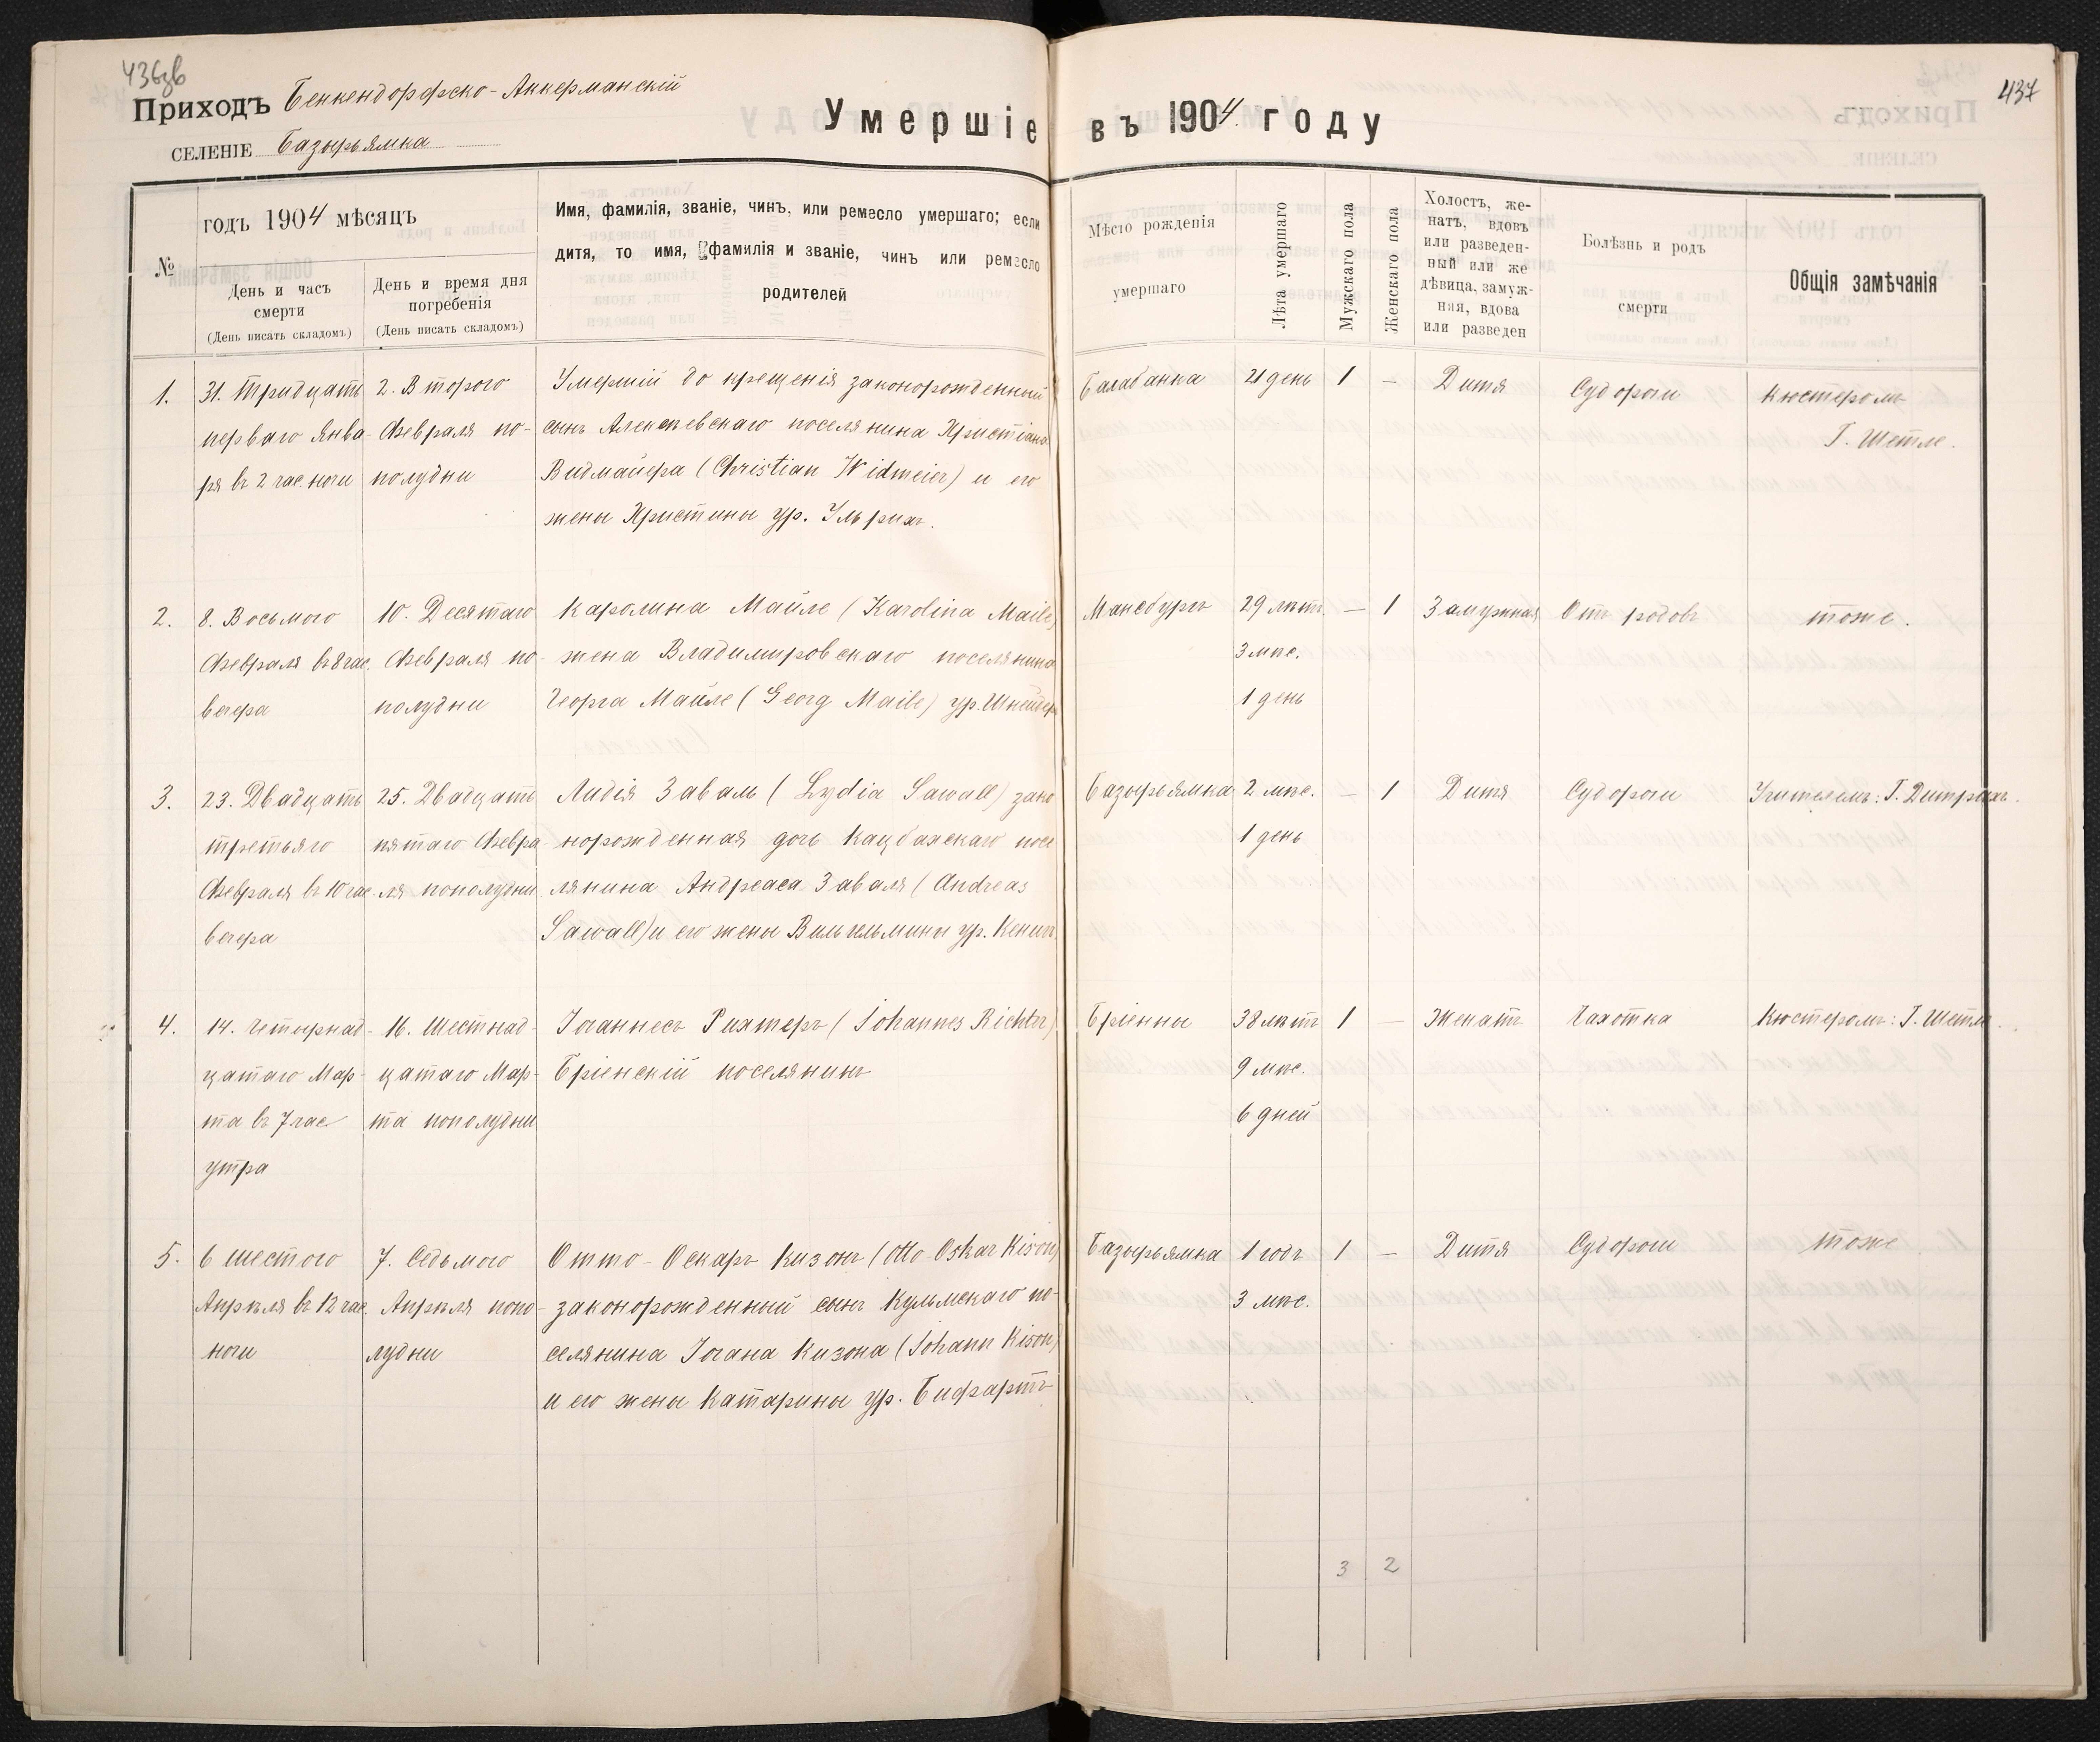 436об
437
Приходъ Бенкендорфско-Аккерманскій
СЕЛЕНІЕ Базырьямка
Умершіе въ 1904 году
№
годъ 1904 мѣсяцъ
День и часъ смерти
(День писать складомъ)
День и время дня погребенія
(День писать складомъ)
Имя, фамилія, званіе, чинъ, или ремесло умершаго; если
дитя, то имя, фамилія и званіе, чинъ или ремесло
родителей
Мѣсто рожденія
умершаго
Лѣта умершаго
Мужскаго пола
Женскаго пола
Холостъ, же-
натъ, вдовъ
или разведен-
ный или же
дѣвица, замуж-
няя, вдова
или разведен
Болѣзнь и родъ
смерти
Общія замѣчанія
1. 31. Тридцать 2. Второго Умершій до крещенія законорожденный Балабанка 21 день 1 — Дитя Судороги Кюстеромъ
перваго Янва- Февраля по- сынъ Алексѣевскаго поселянина Христіана Г. Шетле.
ря въ 2 час. ночи полудни Видмайера (Christian Widmeier) и его
жены Христины ур. Ульрихъ.
2. 8. Восьмого 10. Десятаго Каролина Майле (Karolina Maile) Мансбургъ 29 лѣтъ — 1 Замужняя Отъ родовъ тоже.
Февраля въ 8 час. Февраля по- жена Владимировскаго поселянина 3 мѣс.
вечера полудни Георга Майле (Georg Maile) ур. Шнейдеръ 1 день
3. 23. Двадцать 25. Двадцать Лидія Заваль (Lydia Sawall) зако Базырьямка 2 мѣс. — 1 Дитя Судороги Учителемъ: Г. Дитрихъ.
третьяго пятаго Февра- норожденная дочь Кацбахскаго посе 1 день
Февраля въ 10 час. ля пополудни лянина Андреаса Заваля (Andreas
вечера Sawall) и его жены Вильгельмины ур. Кенигъ.
4. 14. Четырнад- 16. Шестнад- Іоганнесъ Рихтеръ (Johannes Richter) Бріенны 38 лѣтъ 1 — Женатъ Чахотка Кюстеромъ: Г. Шетле.
цатаго Мар- цатаго Мар- Бріенскій поселянинъ 9 мѣс.
та въ 7 час та пополудни 6 дней
утра
5. 6 шестого 7. Седьмого Отто-Оскаръ Кизонъ (Otto Oskar Kison) Базырьямка 1 годъ 1 — Дитя Судороги тоже
Апрѣля въ 12 час. Апрѣля попо- законорожденный сынъ Кульмскаго по- 3 мѣс.
ночи лудни селянина Іогана Кизона (Johann Kison)
и его жены Катарины ур. Бифартъ
3 2